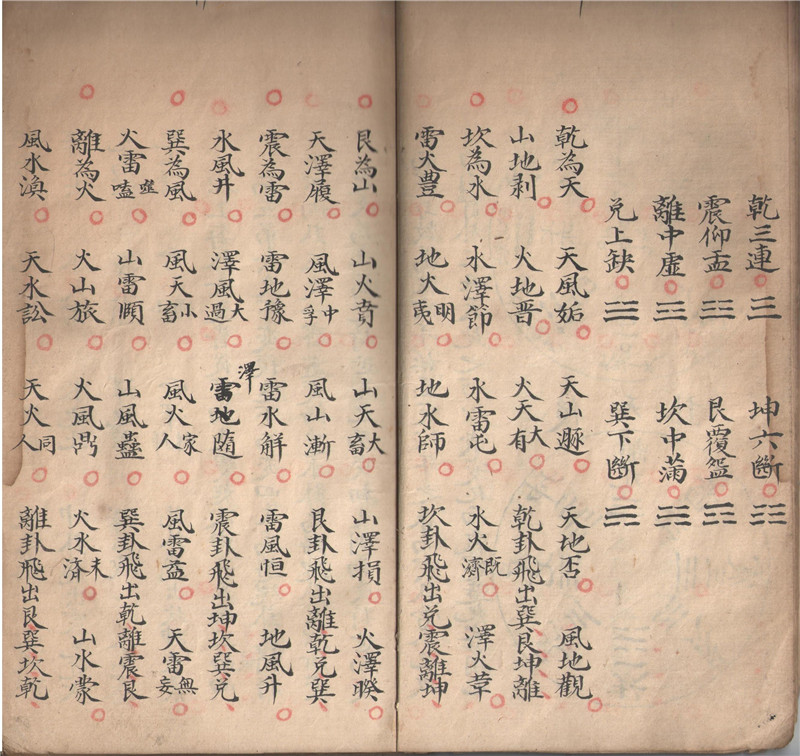 乾三連 坤六斷
震仰盂 艮覆盌
離中虛 坎中滿
兌上缺 巽下斷
乾為天 天風姤 天山遯 天地否 風地觀
山地剥 火地晋 火天大有 乾卦飛出巽艮坤離
坎為水 水澤節 水雷屯 水火既濟 澤火革
雷火豊 地火明夷 地水師 坎卦飛出兌震離坤
艮為山 山火賁 山天大畜 山澤損 火澤睽
天澤履 風澤中孚 風山漸 艮卦飛出離乾兌巽
震為雷 雷地豫 雷水解 雷風恒 地風升
水風升 澤風大過 澤雷地随 震卦飛出坤坎巽兌
巽為風 風天小畜 風火家人 風雷益 天雷無妄
火雷噬嗑 山雷頤 山風蠱 巽卦飛出乾離震艮
離為火 火山旅 火風鼎 火水未済 山水蒙
風水渙 天水訟 天火同人 離卦飛出艮巽坎乾